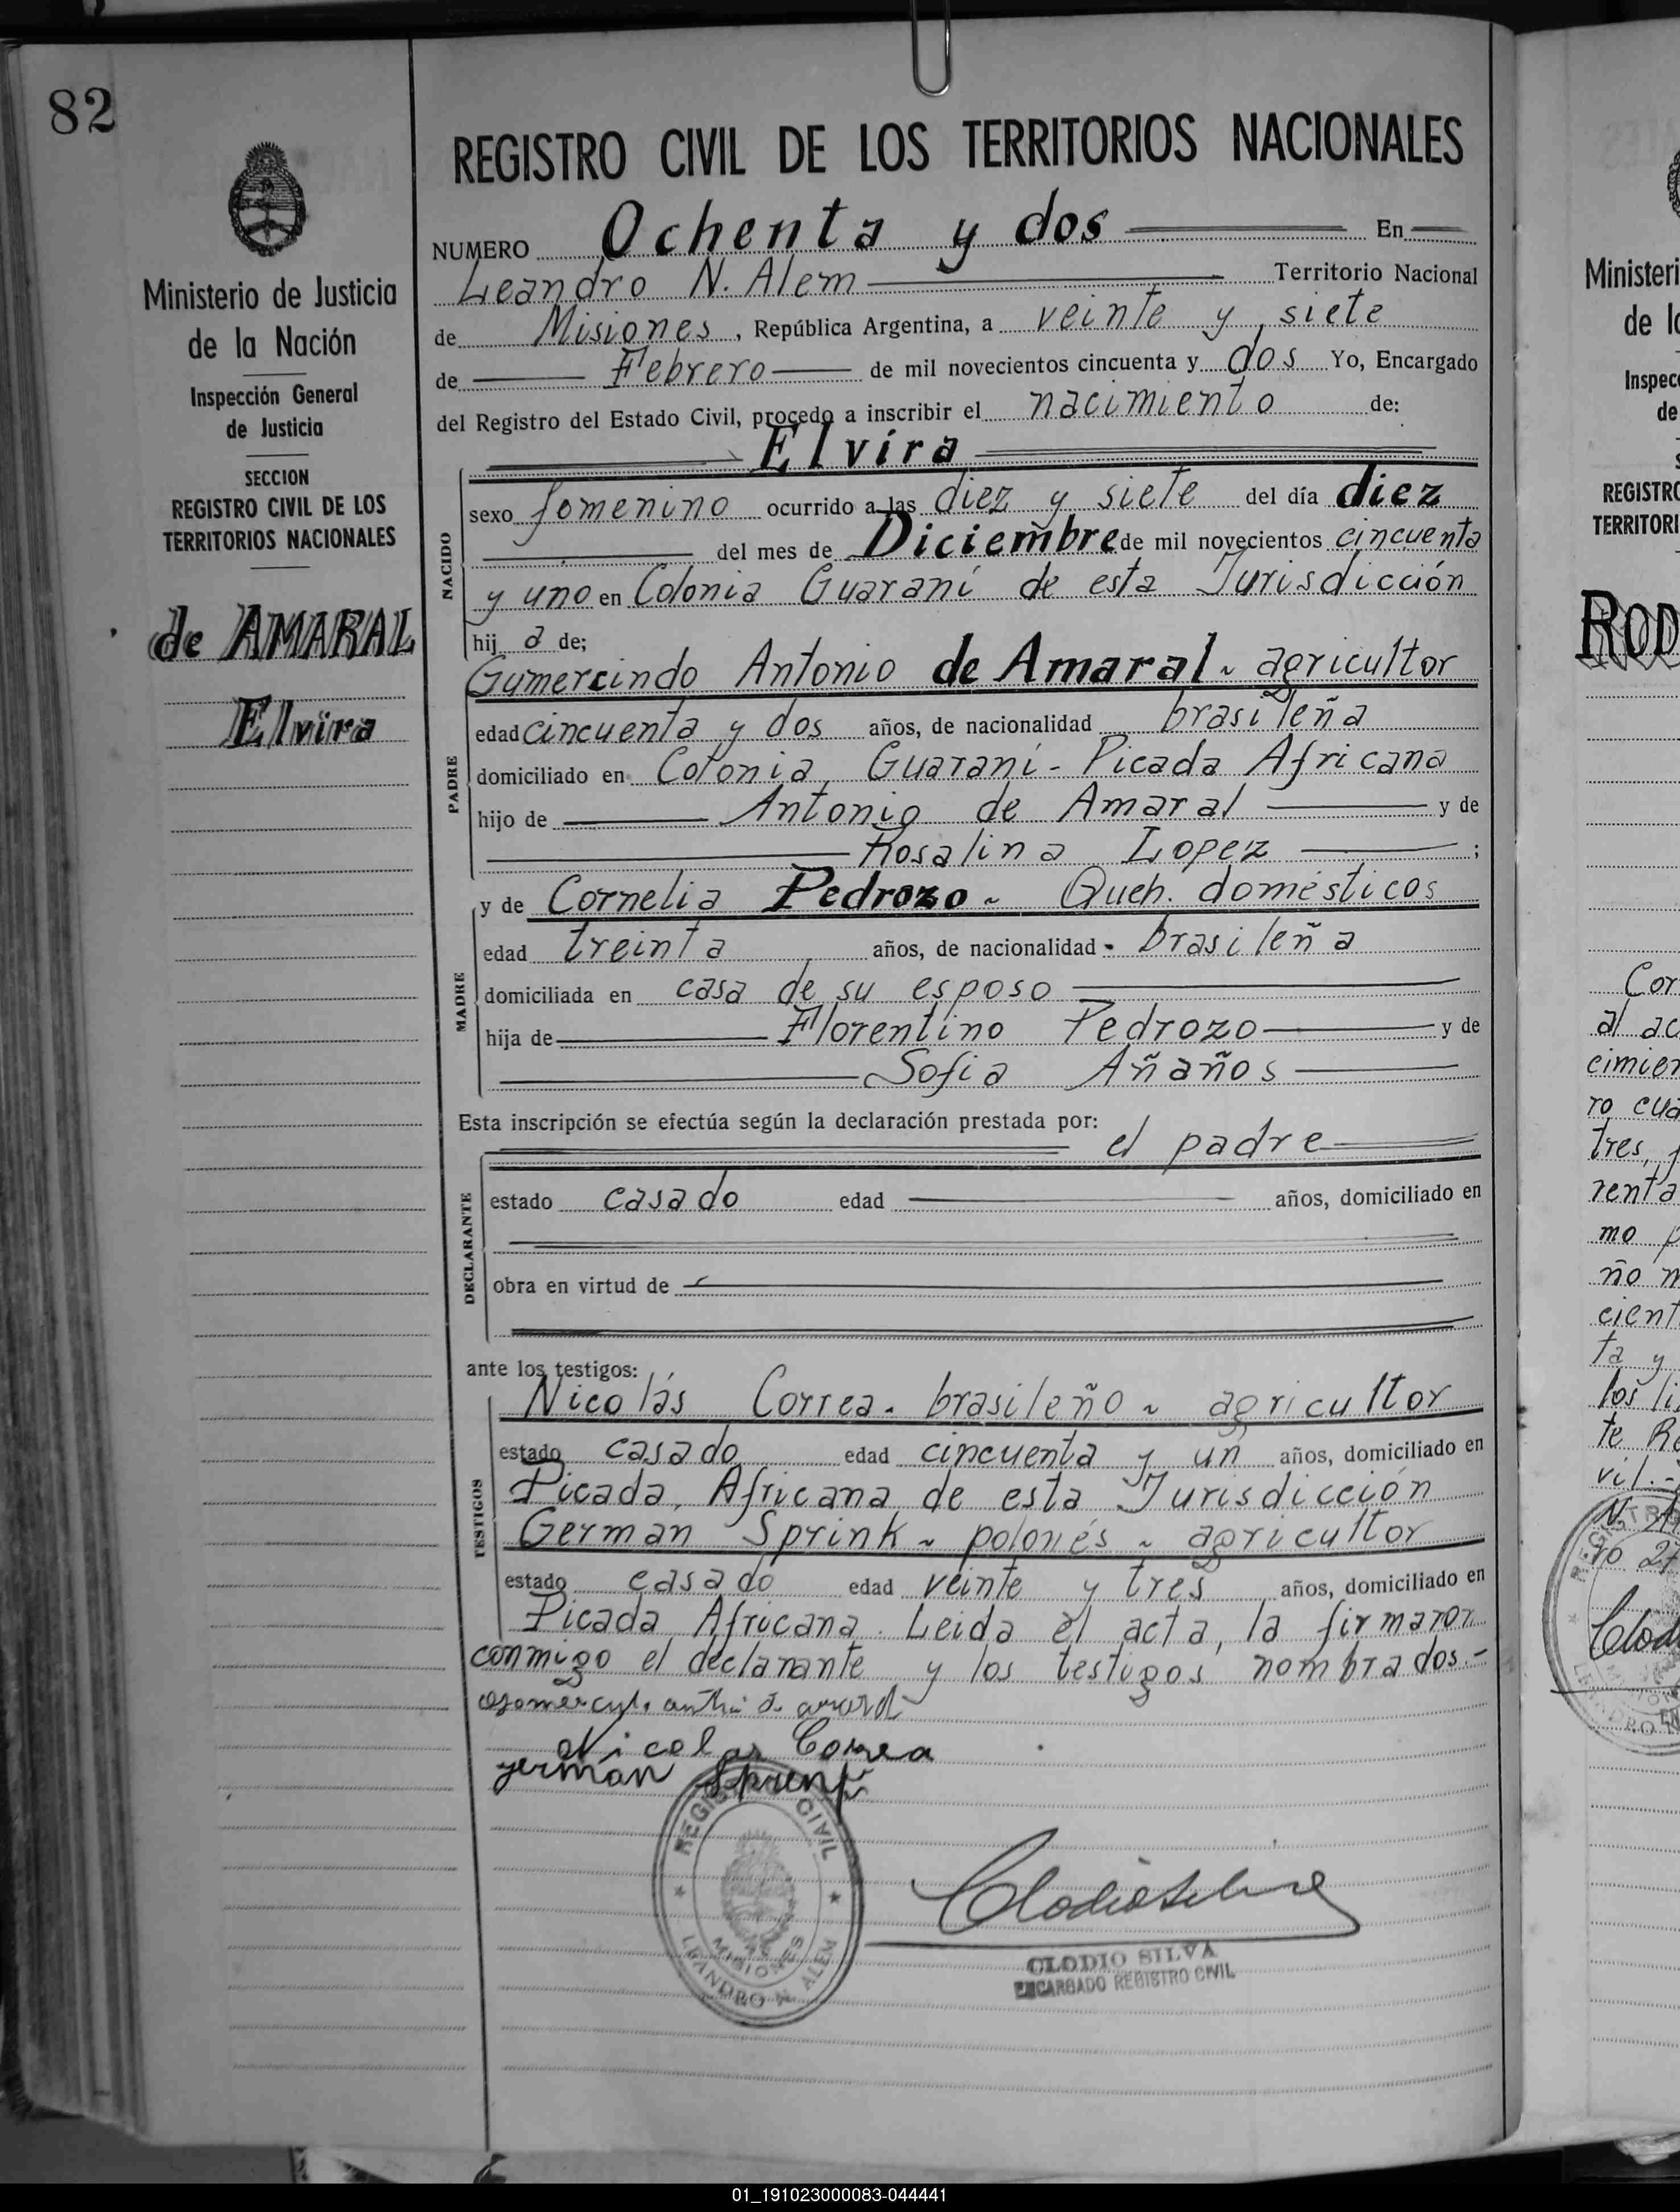 82
Ministerio de Justicia
de la Nación
Inspección General
de Justicia
SECCION
REGISTRO CIVIL DE LOS
TERRITORIOS NACIONALES
de AMARAL
Elvira
REGISTRO CIVIL DE LOS TERRITORIOS NACIONALES
NUMERO Ochenta y dos En
Leandro N. Alem Territorio Nacional
de Misiones, República Argentina, a veinte y siete
de Febrero de mil novecientos cincuenta y dos Yo, Encargado
del Registro del Estado Civil, procedo a inscribir el nacimiento de:
Elvira
NACIDO
sexo femenino ocurrido a las diez y siete del día diez
del mes de Diciembre de mil novecientos cincuenta
y uno en Colonia Guaraní de esta Jurisdicción
hij a de;
PADRE
Gumercindo Antonio de Amaral ~ agricultor
edad cincuenta y dos años, de nacionalidad brasileña
domiciliado en Colonia Guaraní - Picada Africana
hijo de Antonio de Amaral y de
Rosalina Lopez ;
MADRE
y de Cornelia Pedrozo ~ Queh. domésticos
edad treinta años, de nacionalidad - brasileña
domiciliada en casa de su esposo
hija de Florentino Pedrozo y de
Sofia Añaños
Esta inscripción se efectúa según la declaración prestada por:
el padre
DECLARANTE
estado casado edad años, domiciliado en
obra en virtud de
ante los testigos:
TESTIGOS
Nicolás Correa. brasileño ~ agricultor
estado casado edad cincuenta y un años, domiciliado en
Picada Africana de esta Jurisdicción
German Sprink ~ polonés ~ agricultor
estado casado edad veinte y tres años, domiciliado en
Picada Africana. Leida el acta, la firmaron
conmigo el declarante y los testigos nombrados.-
Nicolas Correa
german
REGISTRO CIVIL
MISIONES
LEANDRO N. ALEM
Clodio Silva
CLODIO SILVA
ENCARGADO REGISTRO CIVIL
Ministeri
de l
Inspec
de
REGISTRO
TERRITORI
ROD
Cor
al ac
cimien
ro cua
tres,
renta
mo p
ño m
cient
ta y
los li
te R
vil.-
Clod
01_191023000083-044441